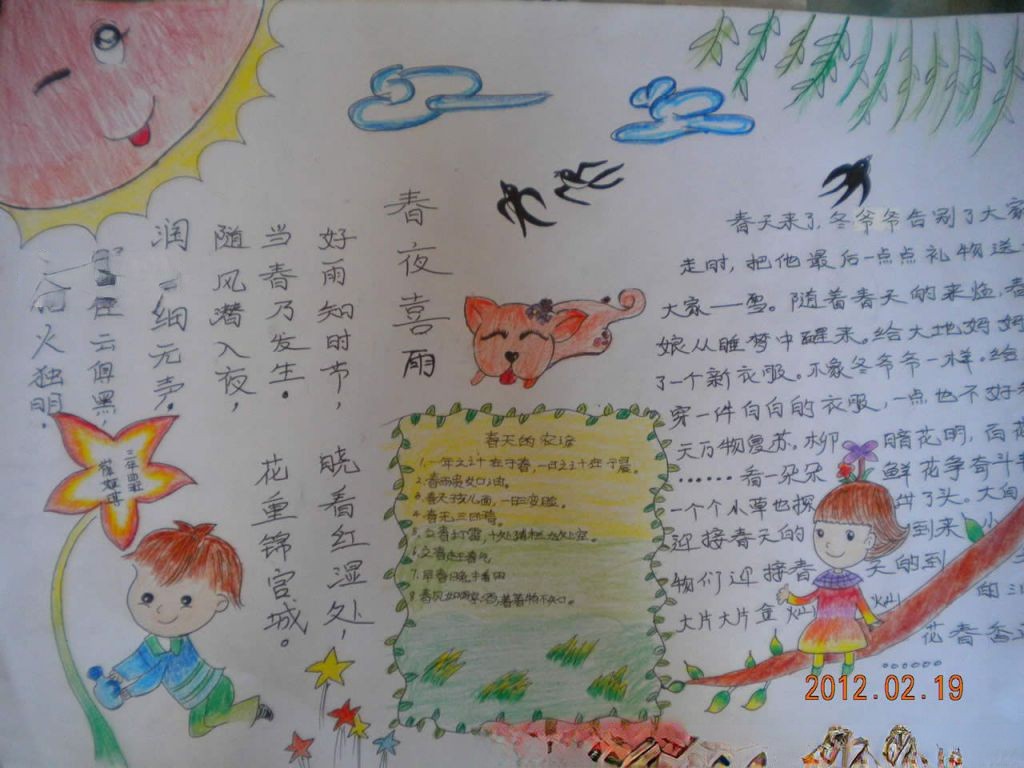 春夜喜雨
好雨知时节，
当春乃发生。
随风潜入夜，
润 细无声，
径云俱黑，
火独明，
晓看红湿处，
花重锦官城。
三年四班
春天的
1.一年之计在于春，一日之计在于晨。
2.春雨贵如油。
3.春天孩儿面，一日三变脸。
4.春无三日晴。
7.早春晚
春天来了，冬爷爷告别了大家
走时，把他最后一点点礼物送
大家——雪。随着春天的来临，春
娘从睡梦中醒来。给大地妈妈
了一个新衣服。不象冬爷爷一样。给
穿一件白白的衣服，一点也不好
天万物复苏，柳暗花明，百花
……看一朵朵鲜花争奇斗
一个个小草也探出了头。大自
迎接春天的到来 小
物们迎接春天的到
大片大片
花香
……
2012.02.19